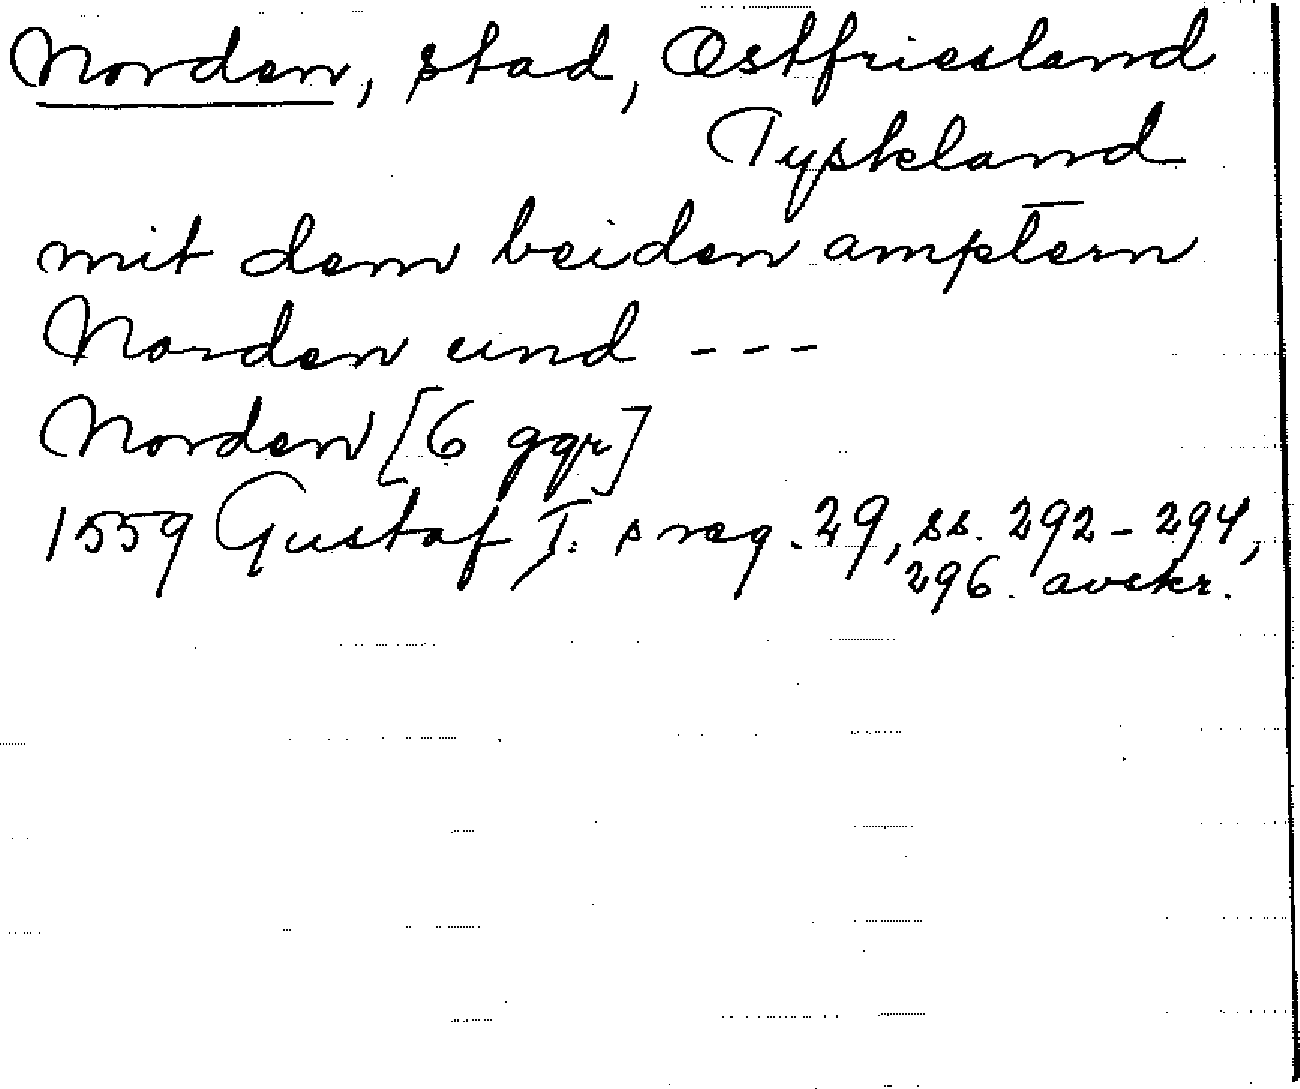 Norden, stad, Ostfriesland
Tyskland
mit dem beiden amptern
Norden und ---
Norden [6 ggr]
1559 Gustaf I:s reg. 29, ss. 292-294,
296. avskr.